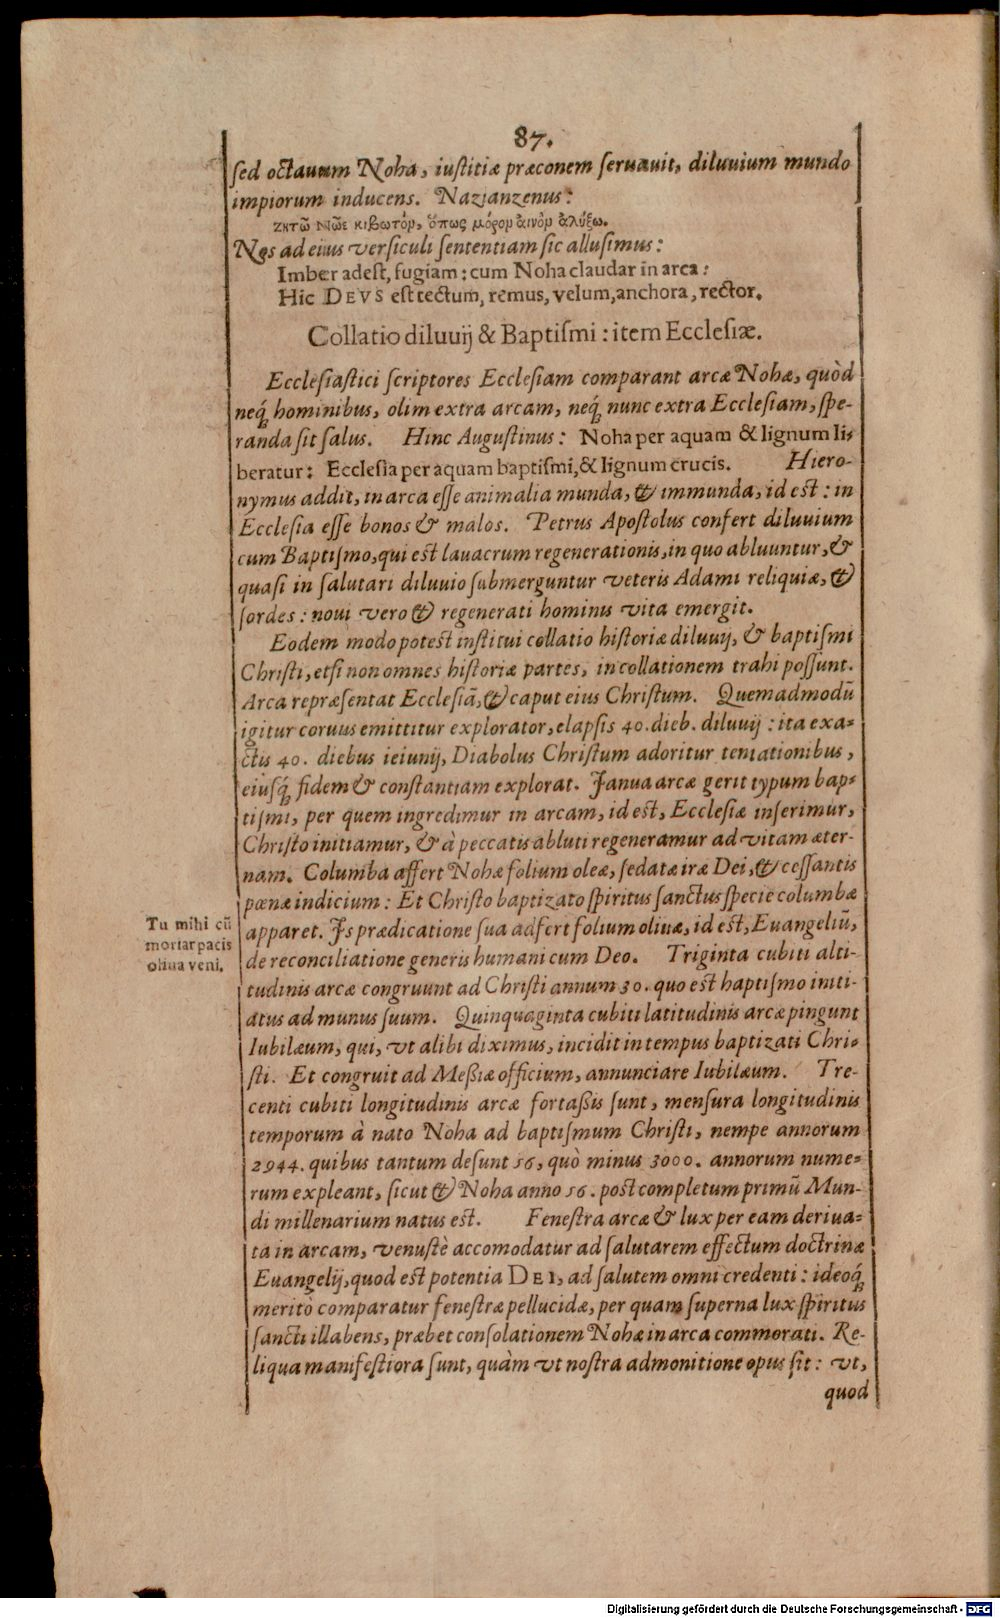 87.
sed octauum Noha, iustitiæ præconem seruauit, diluuium mundo
impiorum inducens. Nazianzenus:
ζητῶ Νῶε κιβωτὸν, ὅπως μόρον αἰνὸν ἀλύξω.
Nos ad eius versiculi sententiam sic allusimus:
Imber adest, fugiam: cum Noha claudar in arca:
Hic DEVS est tectum, remus, velum, anchora, rector.
Collatio diluuij & Baptismi: item Ecclesiæ.
Ecclesiastici scriptores Ecclesiam comparant arcæ Nohæ, quòd
neq́; hominibus, olim extra arcam, neq́; nunc extra Ecclesiam, spe-
randa sit salus. Hinc Augustinus: Noha per aquam & lignum li-
beratur: Ecclesia per aquam baptismi, & lignum crucis. Hiero-
nymus addit, in arca esse animalia munda, & immunda, id est: in
Ecclesia esse bonos & malos. Petrus Apostolus confert diluuium
cum Baptismo, qui est lauacrum regenerationis, in quo abluuntur, &
quasi in salutari diluuio submerguntur veteris Adami reliquiæ, &
sordes: noui vero & regenerati hominis vita emergit.
Eodem modo potest institui collatio historiæ diluuij, & baptismi
Christi, etsi non omnes historiæ partes, in collationem trahi possunt.
Arca repræsentat Ecclesiã, & caput eius Christum. Quemadmodũ
igitur coruus emittitur explorator, elapsis 40. dieb. diluuij: ita exa-
ctis 40. diebus ieiunij, Diabolus Christum adoritur tentationibus,
eiusq́; fidem & constantiam explorat. Ianua arcæ gerit typum bap-
tismi, per quem ingredimur in arcam, id est, Ecclesiæ inserimur,
Christo initiamur, & à peccatis abluti regeneramur ad vitam æter-
nam. Columba affert Nohæ folium oleæ, sedatæ iræ Dei, & cessantis
pœnæ indicium: Et Christo baptizato spiritus sanctus specie columbæ
apparet. Is prædicatione sua adfert folium oliuæ, id est, Euangeliũ,
de reconciliatione generis humani cum Deo. Triginta cubiti alti-
tudinis arcæ congruunt ad Christi annum 30. quo est baptismo initi-
atus ad munus suum. Quinquaginta cubiti latitudinis arcæ pingunt
Iubilæum, qui, vt alibi diximus, incidit in tempus baptizati Chri-
sti. Et congruit ad Meßiæ officium, annunciare Iubilæum. Tre-
centi cubiti longitudinis arcæ fortaßis sunt, mensura longitudinis
temporum à nato Noha ad baptismum Christi, nempe annorum
2944. quibus tantum desunt 56, quò minus 3000. annorum nume-
rum expleant, sicut & Noha anno 56. post completum primũ Mun-
di millenarium natus est. Fenestra arcæ & lux per eam deriua-
ta in arcam, venustè accomodatur ad salutarem effectum doctrinæ
Euangelij, quod est potentia DEI, ad salutem omni credenti: ideoq́;
meritò comparatur fenestræ pellucidæ, per quam superna lux spiritus
sancti illabens, præbet consolationem Nohæ in arca commorati. Re-
liqua manifestiora sunt, quàm vt nostra admonitione opus sit: vt,
quod
Tu mihi cũ
mortar pacis
oliua veni.
Digitalisierung gefördert durch die Deutsche Forschungsgemeinschaft - DFG